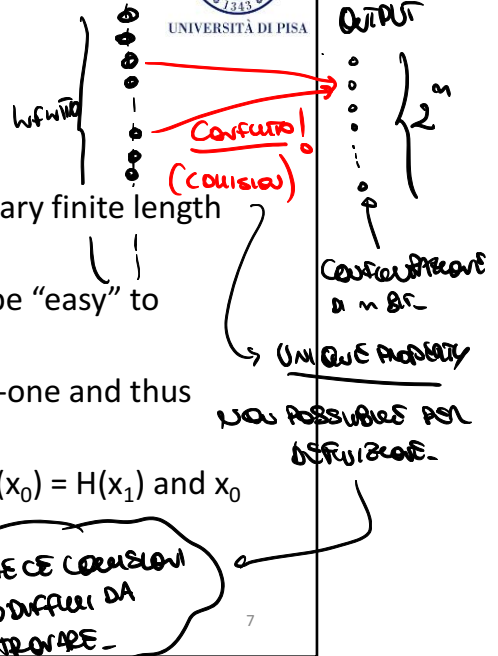 1343
UNIVERSITÀ DI PISA
OUTPUT
INFINITO
2^n
CONFLITTO!
(COLLISION)
ary finite length
CONFIGURAZIONE
DI n BIT-
be “easy” to
UNIQUE PROPERTY
-one and thus
NON POSSIBILE PER
DEFINIZIONE-
(x₀) = H(x₁) and x₀
E CE COLLISIONI
DIFFICILI DA
TROVARE-
7